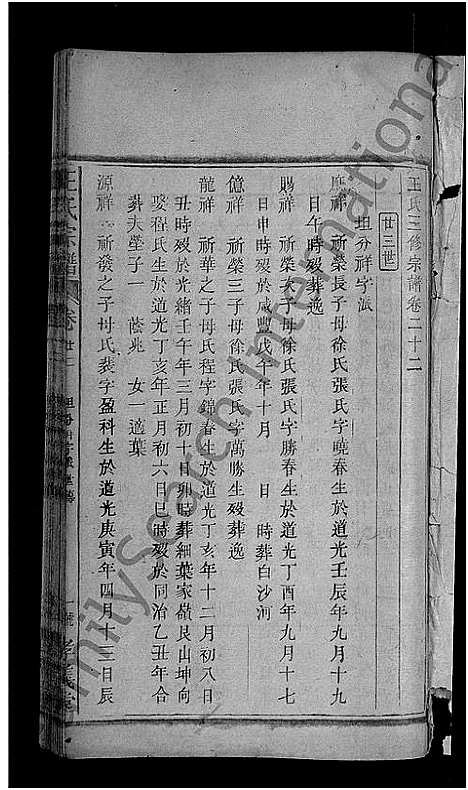 王氏三修宗譜卷二十二
廿三世
坦分祥字派
祥 祈榮長子母徐氏張氏字曉春生於道光壬辰年九月十九
日午時殁葬逸
賜祥 祈榮次子母徐氏張氏字勝春生於道光丁酉年九月十七
日申時殁於咸豐戊午年十月 日 時葬白沙河
億祥 祈榮三子母徐氏張氏字萬勝生殁葬逸
龍祥 祈華之子母氏程字錦春生於道光丁亥年十二月初八日
丑時殁於光緒壬午年三月初十日卯時葬細葉家嶺艮山坤向
娶程氏生於道光丁亥年正月初六日巳時殁於同治乙丑年合
葬夫塋子一 蔭兆 女一適葉
源祥 祈發之子母氏裴字盈科生於道光庚寅年四月十三日辰
王氏宗譜 卷廿二
FamilySearch International